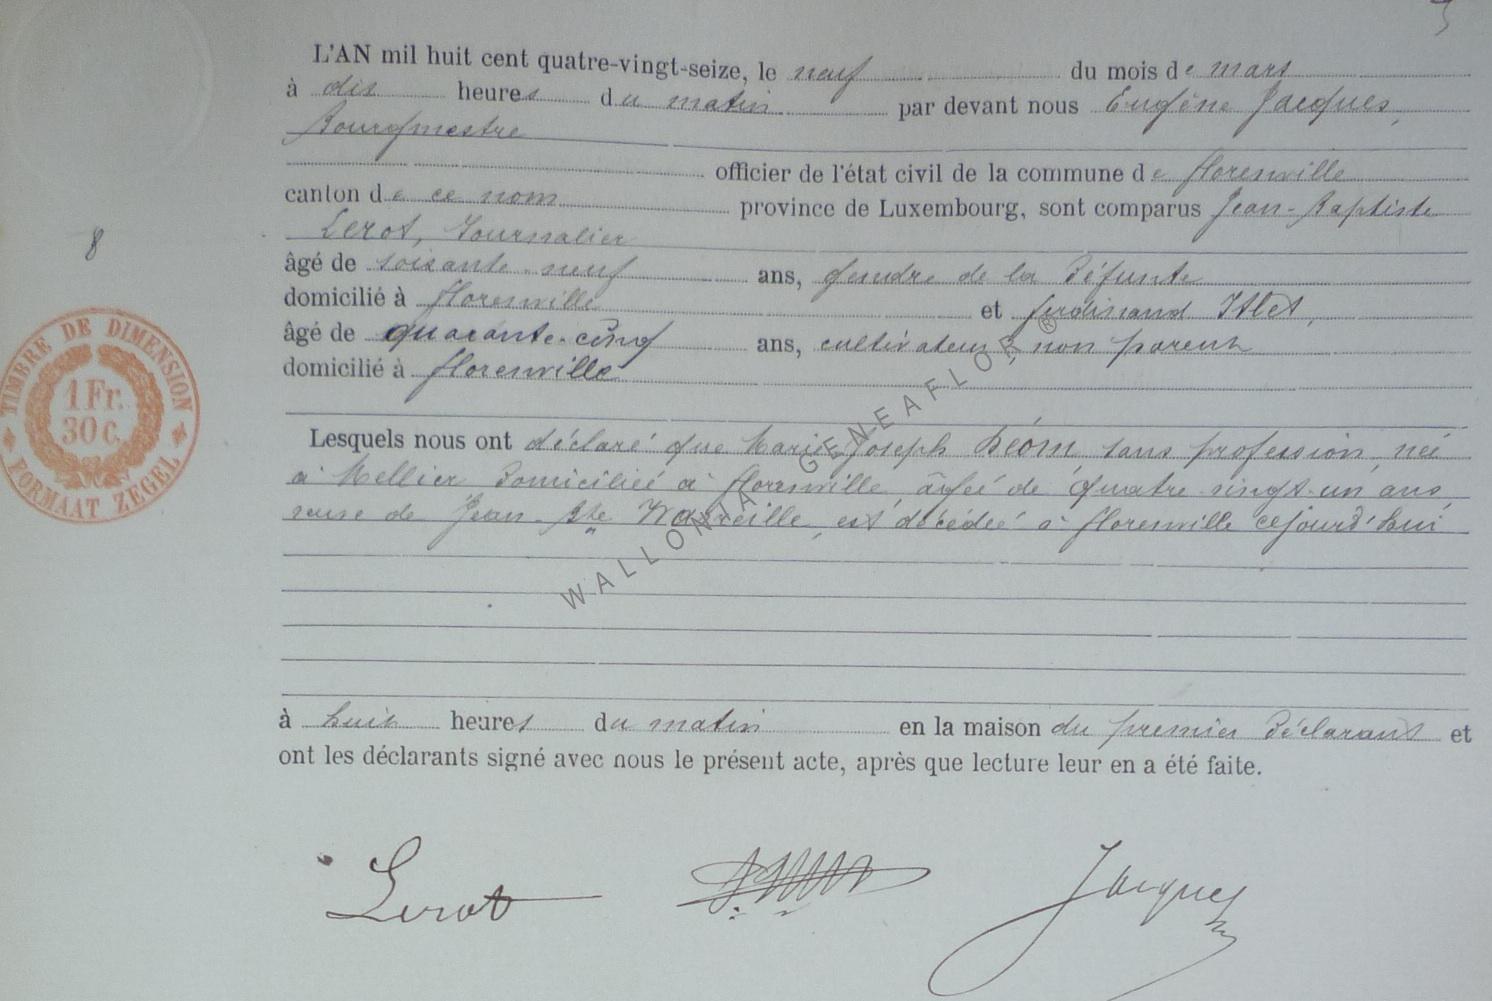 L'AN mil huit cent quatre-vingt-seize, le neuf du mois de mars
à dix heures du matin par devant nous Eugène Jacques,
Bourgmestre
officier de l'état civil de la commune de Florenville
canton de ce nom province de Luxembourg, sont comparus Jean-Baptiste
Lerot, Journalier
âgé de soixante-neuf ans, gendre de la défunte
domicilié à Florenville et Ferdinand
âgé de quarante-cinq ans, cultivateur non parent
domicilié à Florenville
Lesquels nous ont déclaré que Marie-Joseph Déom, sans profession, née
à Mellier domiciliée à Florenville, âgée de quatre-vingt-un ans,
veuve de Jean-Bte est décédée à Florenville cejourd'hui
à huit heures du matin en la maison du premier déclarant et
ont les déclarants signé avec nous le présent acte, après que lecture leur en a été faite.
Lerot Jacques
8
TIMBRE DE DIMENSION
1 Fr.
30 c.
FORMAAT ZEGEL
WALLONIA GENEAFLOR ®